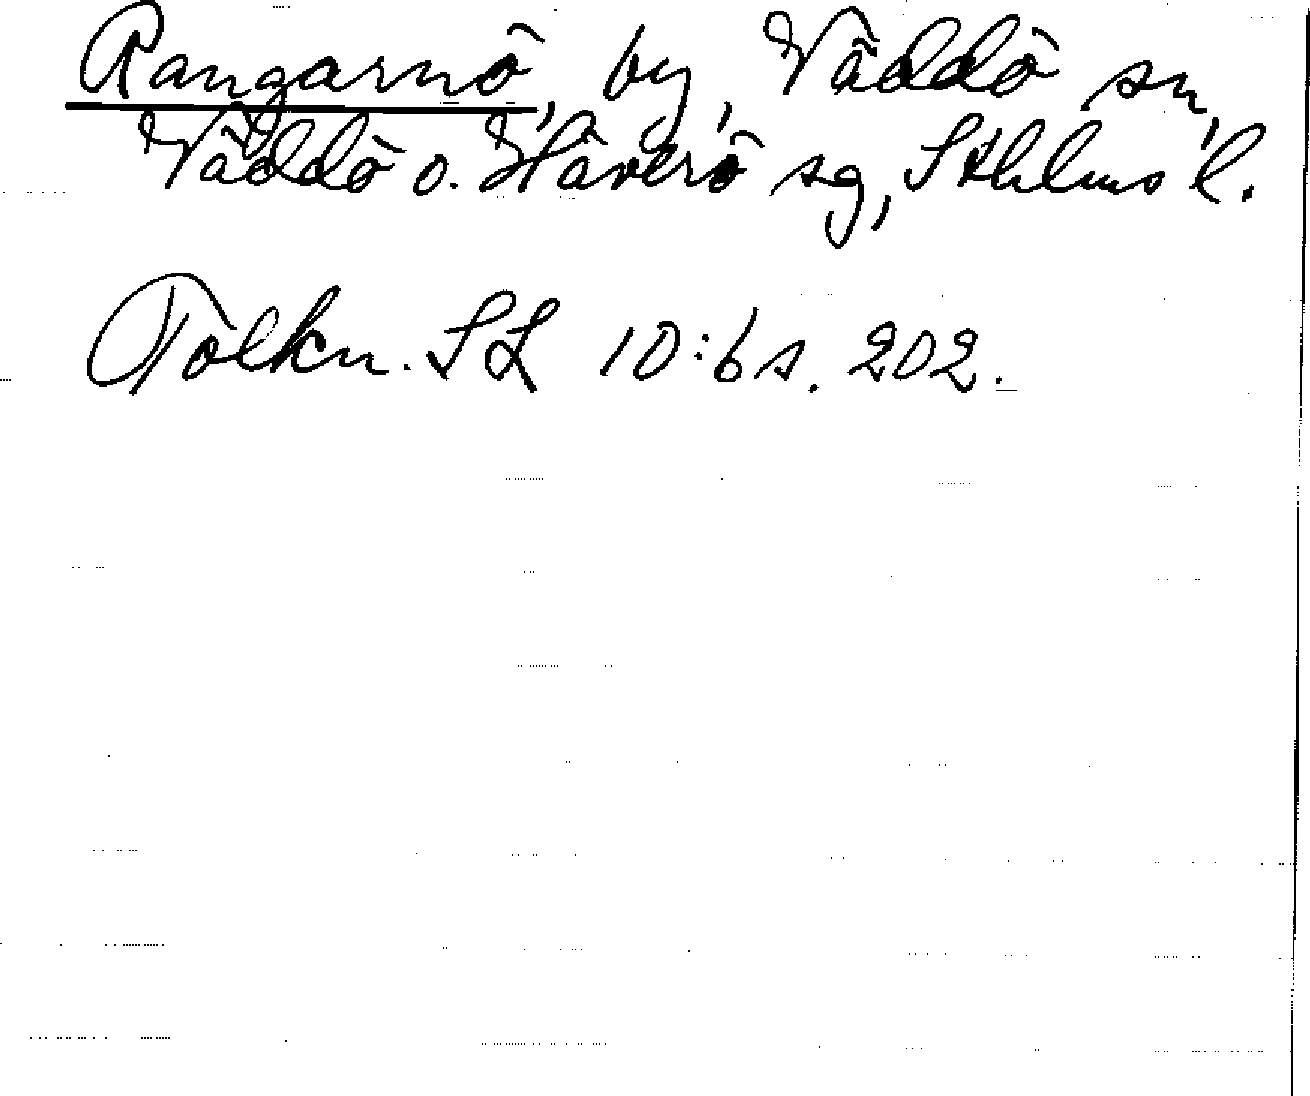 Rangarnö, by, Väddö sn,
Väddö o. Häverö sg, Sthlms l.
Tolkn. SL 10:6 s. 202.